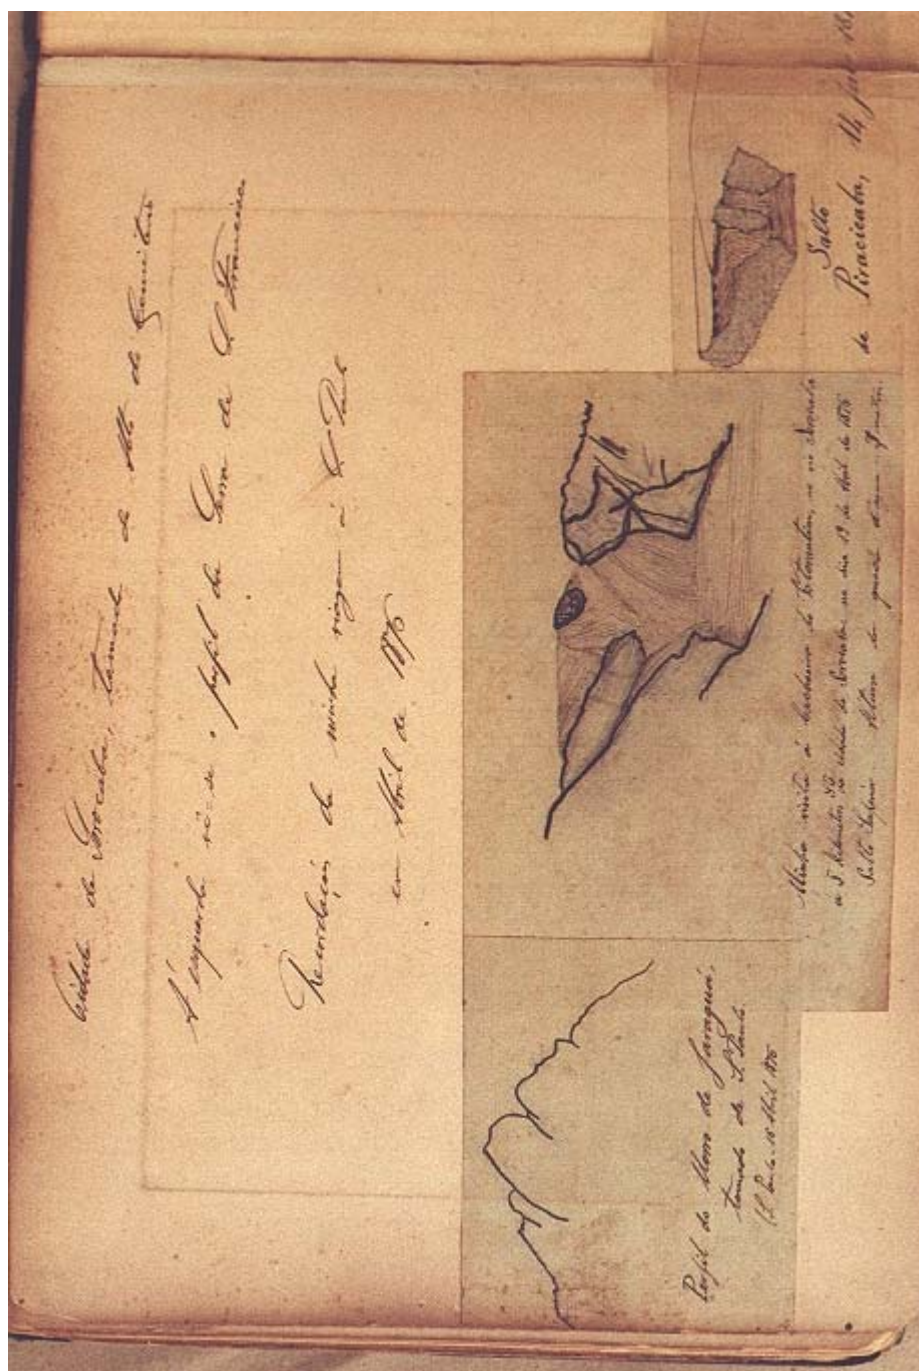 Cidade de Sorocaba, tomada do alto do Cemiterio
A' esquerda vê-se o perfil da Serra de S. Francisco
Recordação da minha viagem á S. Paulo
em Abril de 1876
Perfil do Morro do Jaraguá,
tomado de S. Paulo.
(S. Paulo 16 Abril 1876
Minha visita á cachoeira do Votorantim, no rio Sorocaba
a 5 kilometros da cidade de Sorocaba no dia 19 de Abril de 1876
Salto altura da queda d'agua metros.
Salto
de Piracicaba, 14